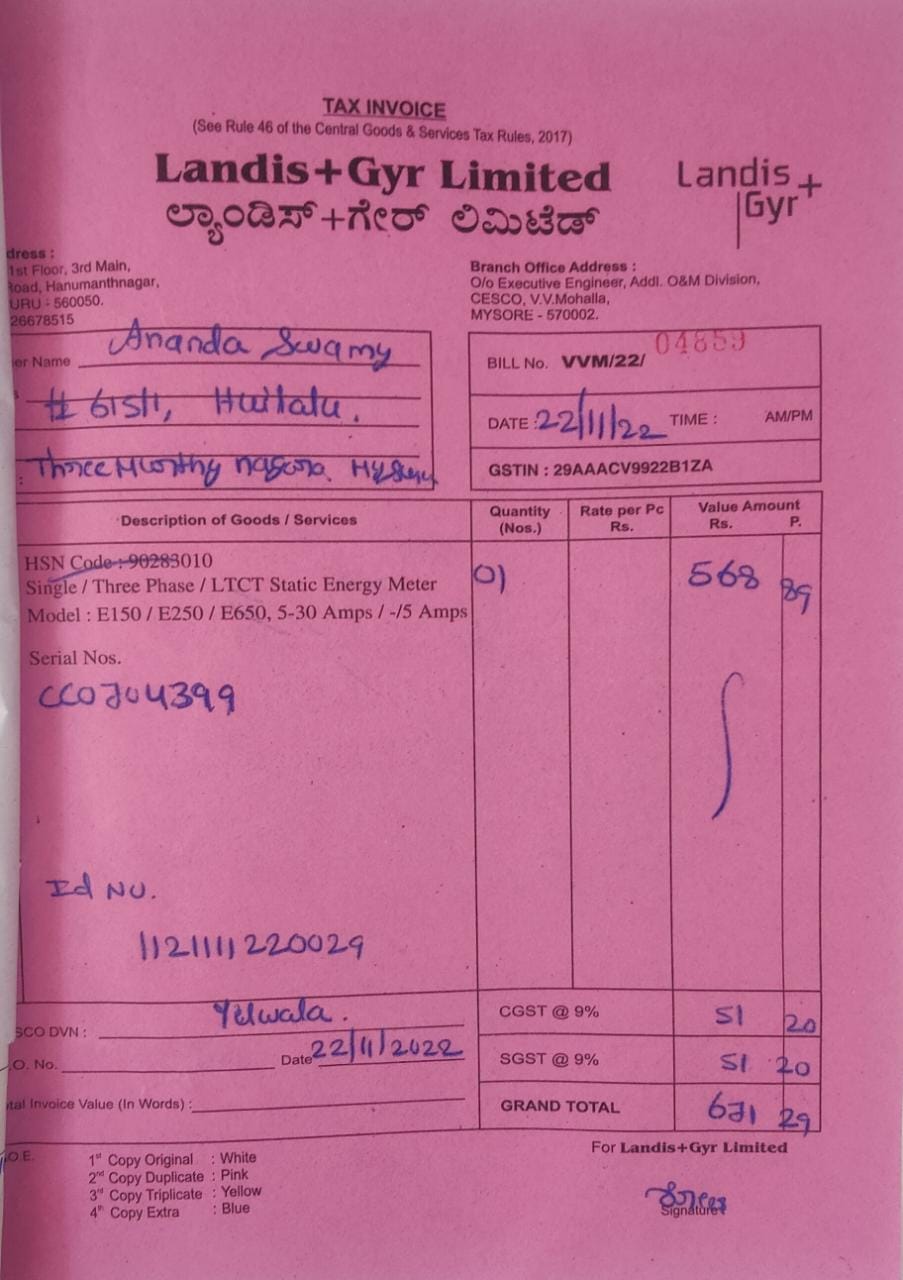 TAX INVOICE
(See Rule 46 of the Central Goods & Services Tax Rules, 2017)
Landis+Gyr Limited
ಲ್ಯಾಂಡಿಸ್+ಗೇರ್ ಲಿಮಿಟೆಡ್
Landis+
Gyr
dress :
1st Floor, 3rd Main,
Road, Hanumanthnagar,
URU - 560050.
26678515
Branch Office Address :
O/o Executive Engineer, Addl. O&M Division,
CESCO, V.V.Mohalla,
MYSORE - 570002.
er Name Ananda Swamy
# 615/1, Huilalu.
BILL No. VVM/22/ 04859
DATE : 22/11/22 TIME : AM/PM
GSTIN : 29AAACV9922B1ZA
Description of Goods / Services
Quantity (Nos.)
Rate per Pc Rs.
Value Amount
Rs. P.
HSN Code : 90283010
Single / Three Phase / LTCT Static Energy Meter
Model : E150 / E250 / E650, 5-30 Amps / -/5 Amps
01
568 89
Serial Nos.
CC0704399
Id No.
1121111220029
SCO DVN : Yelwala.
.O. No. Date 22/11/2022
tal Invoice Value (In Words) :
CGST @ 9% 51 20
SGST @ 9% 51 20
GRAND TOTAL 671 29
.O.E.
1st Copy Original : White
2nd Copy Duplicate : Pink
3rd Copy Triplicate : Yellow
4th Copy Extra : Blue
For Landis+Gyr Limited
Signature